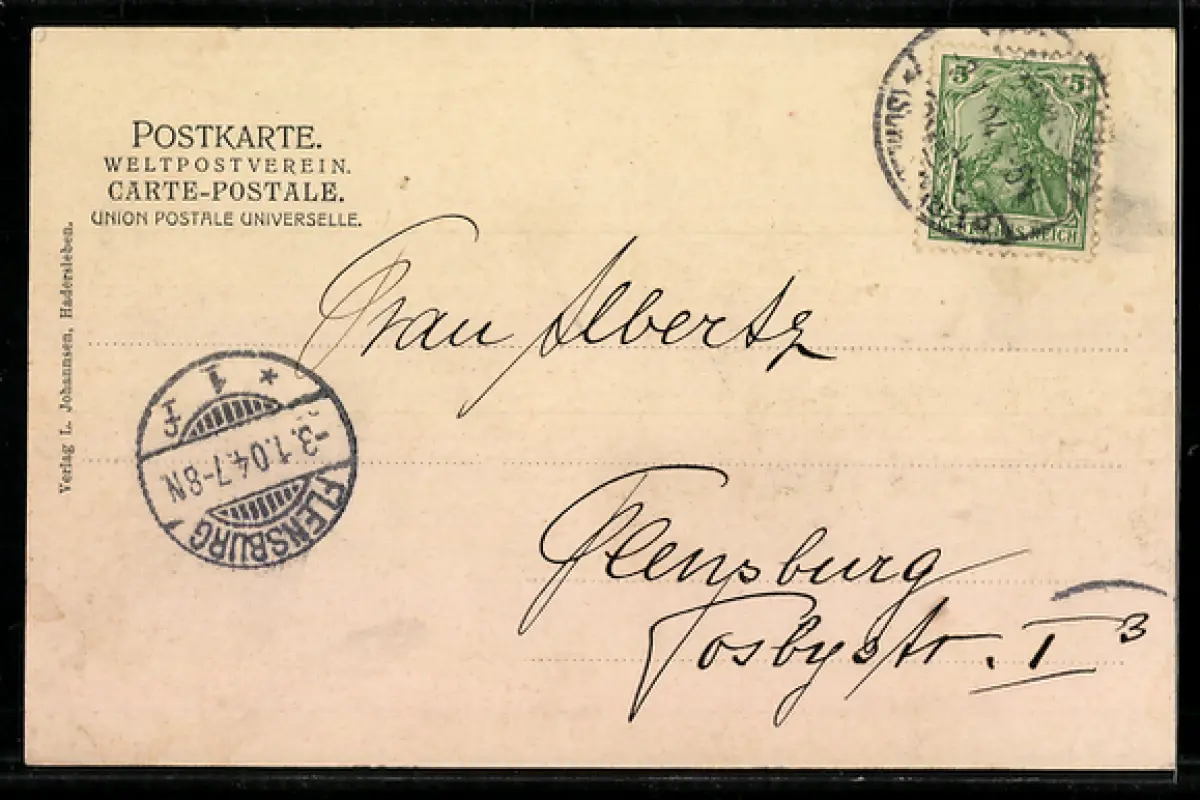 POSTKARTE.
WELTPOSTVEREIN.
CARTE-POSTALE.
UNION POSTALE UNIVERSELLE.
Verlag L. Johannsen, Hadersleben.
5 5
REICH
Frau Albertz
* 1
-3.1.04.7-8N
FLENSBURG
Flensburg
Tosbystr. I 3